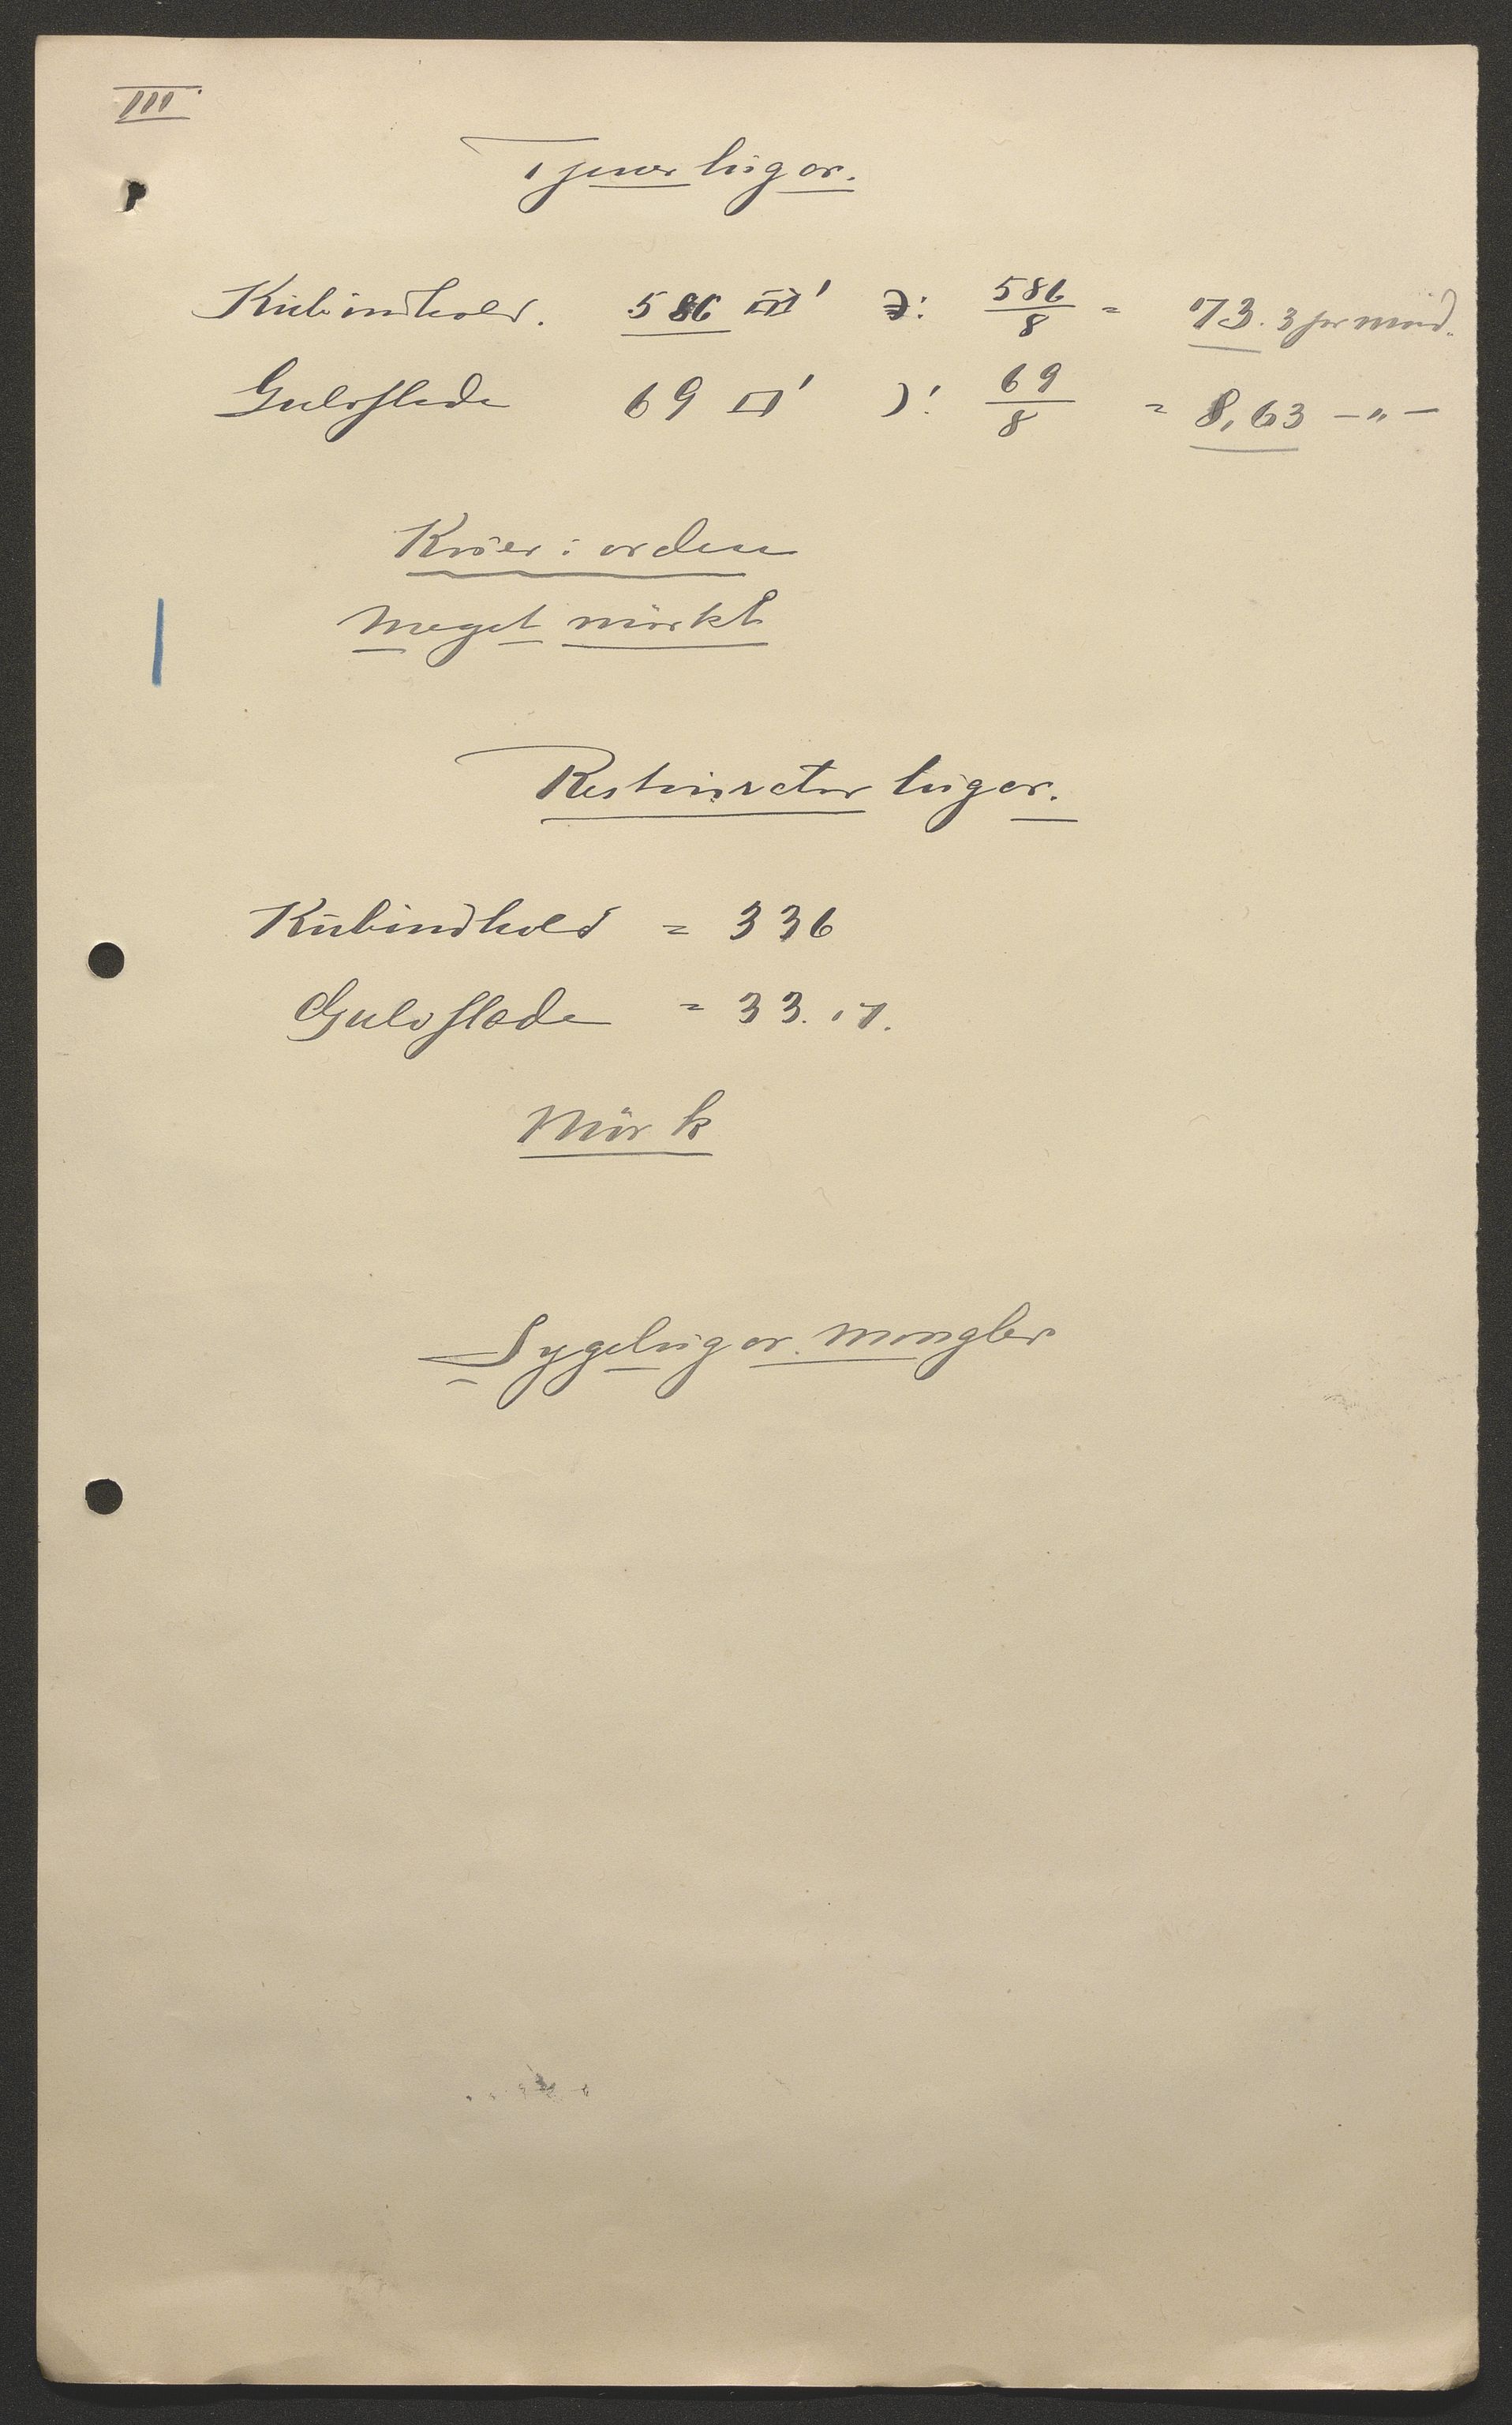 III
Tjenerlugar.
Kubindhold. 586 □' ɔ: 586/8 = 73.3 pr mand.
Gulvflade 69 □' ɔ: 69/8 = 8,63 —"—
Køier i orden
Meget mörkt
Restauratör lugar.
Kubindhold = 336
Gulvflade = 33.17.
Mörk
Sygelugar mangler